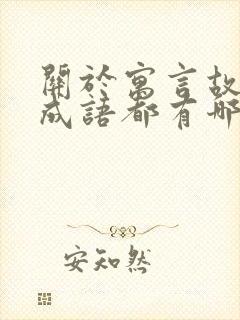 關於寓言故
成語都有哪
安知然